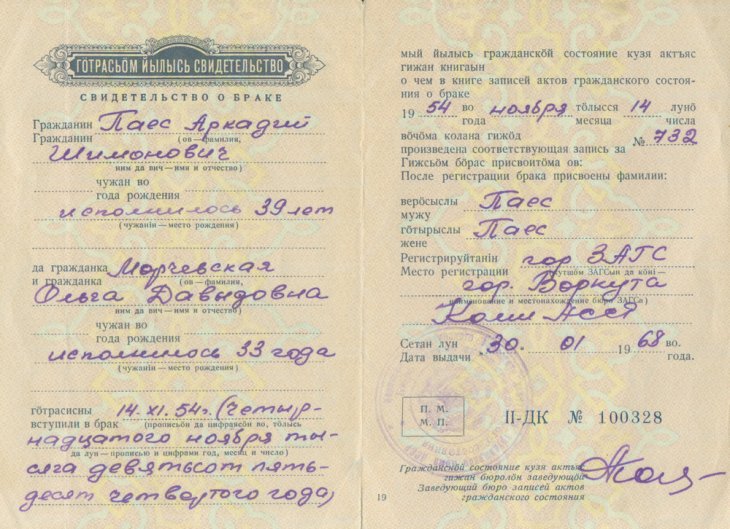 ГӦТРАСЬӦМ ЙЫЛЫСЬ СВИДЕТЕЛЬСТВО
СВИДЕТЕЛЬСТВО О БРАКЕ
Гражданин Паес Аркадий
Гражданин (ов — фамилия,
Шимонович
ним да вич — имя и отчество)
чужан во
года рождения
исполнилось 39 лет
(чужанін — место рождения)
да гражданка Морчевская
и гражданка (ов — фамилия,
Ольга Давыдовна
ним да вич — имя и отчество)
чужан во
года рождения
исполнилось 33 года
(чужанін — место рождения)
гӧтрасисны 14.XI.54г. (четыр-
вступили в брак (прописьӧн да цифраясӧн во, тӧлысь
надцатого ноября ты-
да лун — прописью и цифрами год, месяц и число)
сяча девятьсот пять-
десят четвертого года)
мый йылысь гражданскӧй состояние кузя актъяс
гижан книгаын
о чем в книге записей актов гражданского состоя-
ния о браке
19 54 во ноября тӧлысся 14 лунӧ
года месяца числа
вӧчӧма колана гижӧд
произведена соответствующая запись за № 732
Гижсьӧм бӧрас присвоитӧма ов:
После регистрации брака присвоены фамилии:
верӧсыслы Паес
мужу
гӧтырыслы Паес
жене
Регистрируйтанін гор ЗАГС
Место регистрации
гор. Воркута
наименование и местонахождение бюро ЗАГСа)
Коми АССР
Сетан лун "30. 01 1968 во.
Дата выдачи года.
П. М.
М. П.
II-ДК № 100328
Гражданскӧй состояние кузя актъяс
гижан бюролӧн заведующӧй
Заведующий бюро записей актов
гражданского состояния
19